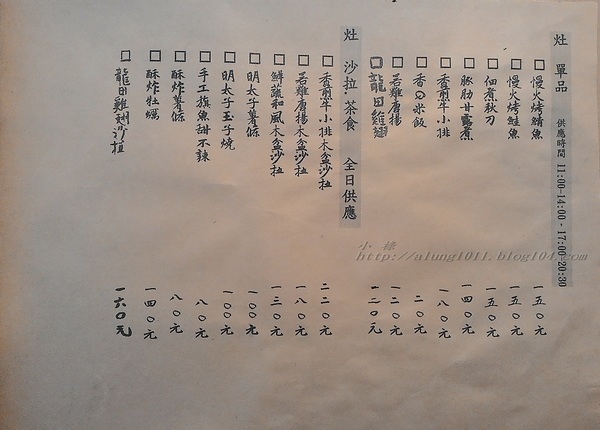 灶 單品 供應時間 11:00-14:00、17:00-20:30
□慢火烤鯖魚 一五〇元
□慢火烤鮭魚 一五〇元
□佃煮秋刀 一五〇元
□豚肋甘露煮 一四〇元
□香煎牛小排 一八〇元
□香Q米飯 二〇元
□若雞唐揚 一二〇元
□龍田雞翅 一二〇元
灶 沙拉 茶食 全日供應
□香煎牛小排木盆沙拉 二二〇元
□若雞唐揚木盆沙拉 一八〇元
□鮮蔬和風木盆沙拉 一三〇元
□明太子薯條 一〇〇元
□明太子玉子燒 一〇〇元
□手工旗魚甜不辣 八〇元
□酥炸薯條 八〇元
□酥炸牡蠣 一四〇元
□龍田雞翅沙拉 一六〇元
小綠
http://alung1011.blog104.com